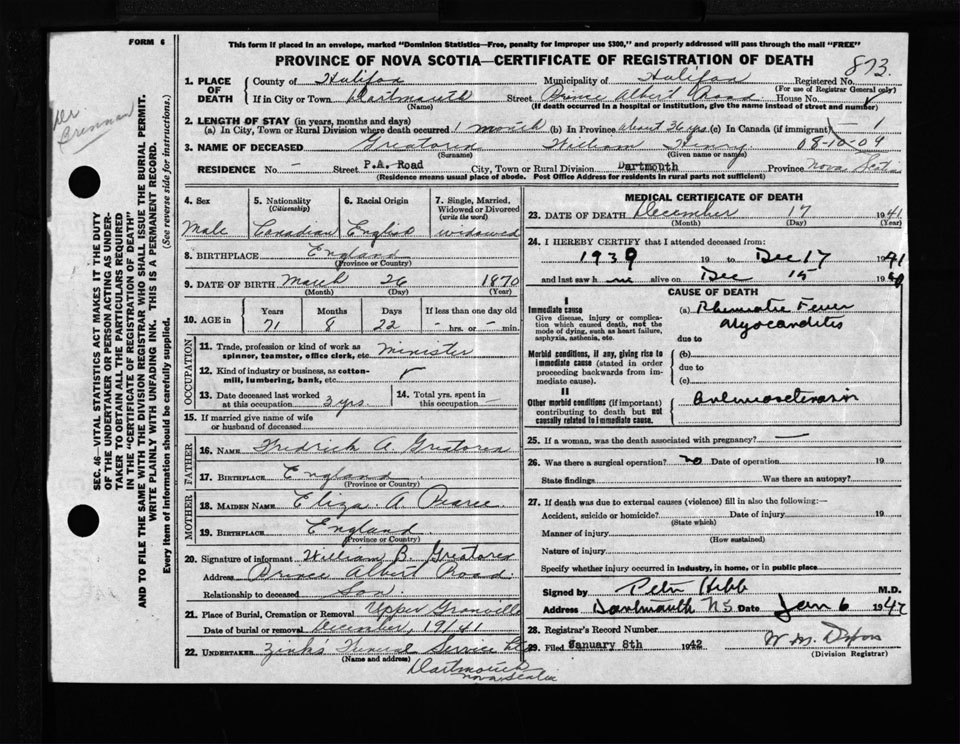 FORM 6
This form if placed in an envelope, marked "Dominion Statistics—Free, penalty for improper use $300," and properly addressed will pass through the mail "FREE"
PROVINCE OF NOVA SCOTIA—CERTIFICATE OF REGISTRATION OF DEATH
873
1. PLACE OF DEATH
County of Halifax Municipality of Halifax Registered No.
(For use of Registrar General only)
If in City or Town Dartmouth Street Prince Albert Road House No.
(If death occurred in a hospital or institution, give the name instead of street and number)
2. LENGTH OF STAY (in years, months and days)
(a) In City, Town or Rural Division where death occurred 1 month (b) In Province about 36 yrs (c) In Canada (if immigrant) — 1
3. NAME OF DECEASED Greatorex William Henry 08-10-09
(Surname) (Given name or names)
RESIDENCE No. - Street P.A. Road City, Town or Rural Division Dartmouth Province Nova Scotia
(Residence means usual place of abode. Post Office Address for residents in rural parts not sufficient)
4. Sex
Male
5. Nationality (Citizenship)
Canadian
6. Racial Origin
English
7. Single, Married, Widowed or Divorced (write the word)
widowed
8. BIRTHPLACE England
(Province or Country)
9. DATE OF BIRTH March 26 1870
(Month) (Day) (Year)
10. AGE in
Years Months Days If less than one day old
71 8 22 - hrs. or - min.
OCCUPATION
11. Trade, profession or kind of work as spinner, teamster, office clerk, etc. Minister
12. Kind of industry or business, as cotton-mill, lumbering, bank, etc.
13. Date deceased last worked at this occupation 3 yrs.
14. Total yrs. spent in this occupation -
15. If married give name of wife or husband of deceased
FATHER
16. NAME Fredrick A. Greatorex
17. BIRTHPLACE England
(Province or Country)
MOTHER
18. MAIDEN NAME Eliza A Pearce
19. BIRTHPLACE England
(Province or Country)
20. Signature of informant William B. Greatorex
Address Prince Albert Road.
Relationship to deceased Son
21. Place of Burial, Cremation or Removal Upper Granville
Date of burial or removal December, 19/41
22. UNDERTAKER Zinks Funeral Service Lt
(Name and address)
Dartmouth
Nova Scotia
MEDICAL CERTIFICATE OF DEATH
23. DATE OF DEATH December 17 1941
(Month) (Day) (Year)
24. I HEREBY CERTIFY that I attended deceased from:
1939 19 to Dec 17 1941
and last saw h alive on Dec 19
CAUSE OF DEATH
I
Immediate cause
Give disease, injury or complication which caused death, not the mode of dying, such as heart failure, asphyxia, asthenia, etc.
(a) Rheumatic Fever
Myocarditis
due to
Morbid conditions, if any, giving rise to immediate cause (stated in order proceeding backwards from immediate cause).
(b)
due to
(c)
II
Other morbid conditions (if important) contributing to death but not causally related to immediate cause.
25. If a woman, was the death associated with pregnancy? —
26. Was there a surgical operation? no Date of operation 19
State findings Was there an autopsy?
27. If death was due to external causes (violence) fill in also the following:—
Accident, suicide or homicide? Date of injury 19
(State which)
Manner of injury
(How sustained)
Nature of injury
Specify whether injury occurred in industry, in home, or in public place
Signed by Peter Hebb M.D.
Address Dartmouth N.S. Date Jan 6 1942
28. Registrar's Record Number
29. Filed January 8th 1942
(Division Registrar)
SEC. 46—VITAL STATISTICS ACT MAKES IT THE DUTY
OF THE UNDERTAKER OR PERSON ACTING AS UNDER-
TAKER TO OBTAIN ALL THE PARTICULARS REQUIRED
IN THE "CERTIFICATE OF REGISTRATION OF DEATH"
AND TO FILE THE SAME WITH THE DIVISION REGISTRAR WHO SHALL ISSUE THE BURIAL PERMIT.
WRITE PLAINLY WITH UNFADING INK. THIS IS A PERMANENT RECORD.
Every item of information should be carefully supplied. (See reverse side for instructions.)
Brennan